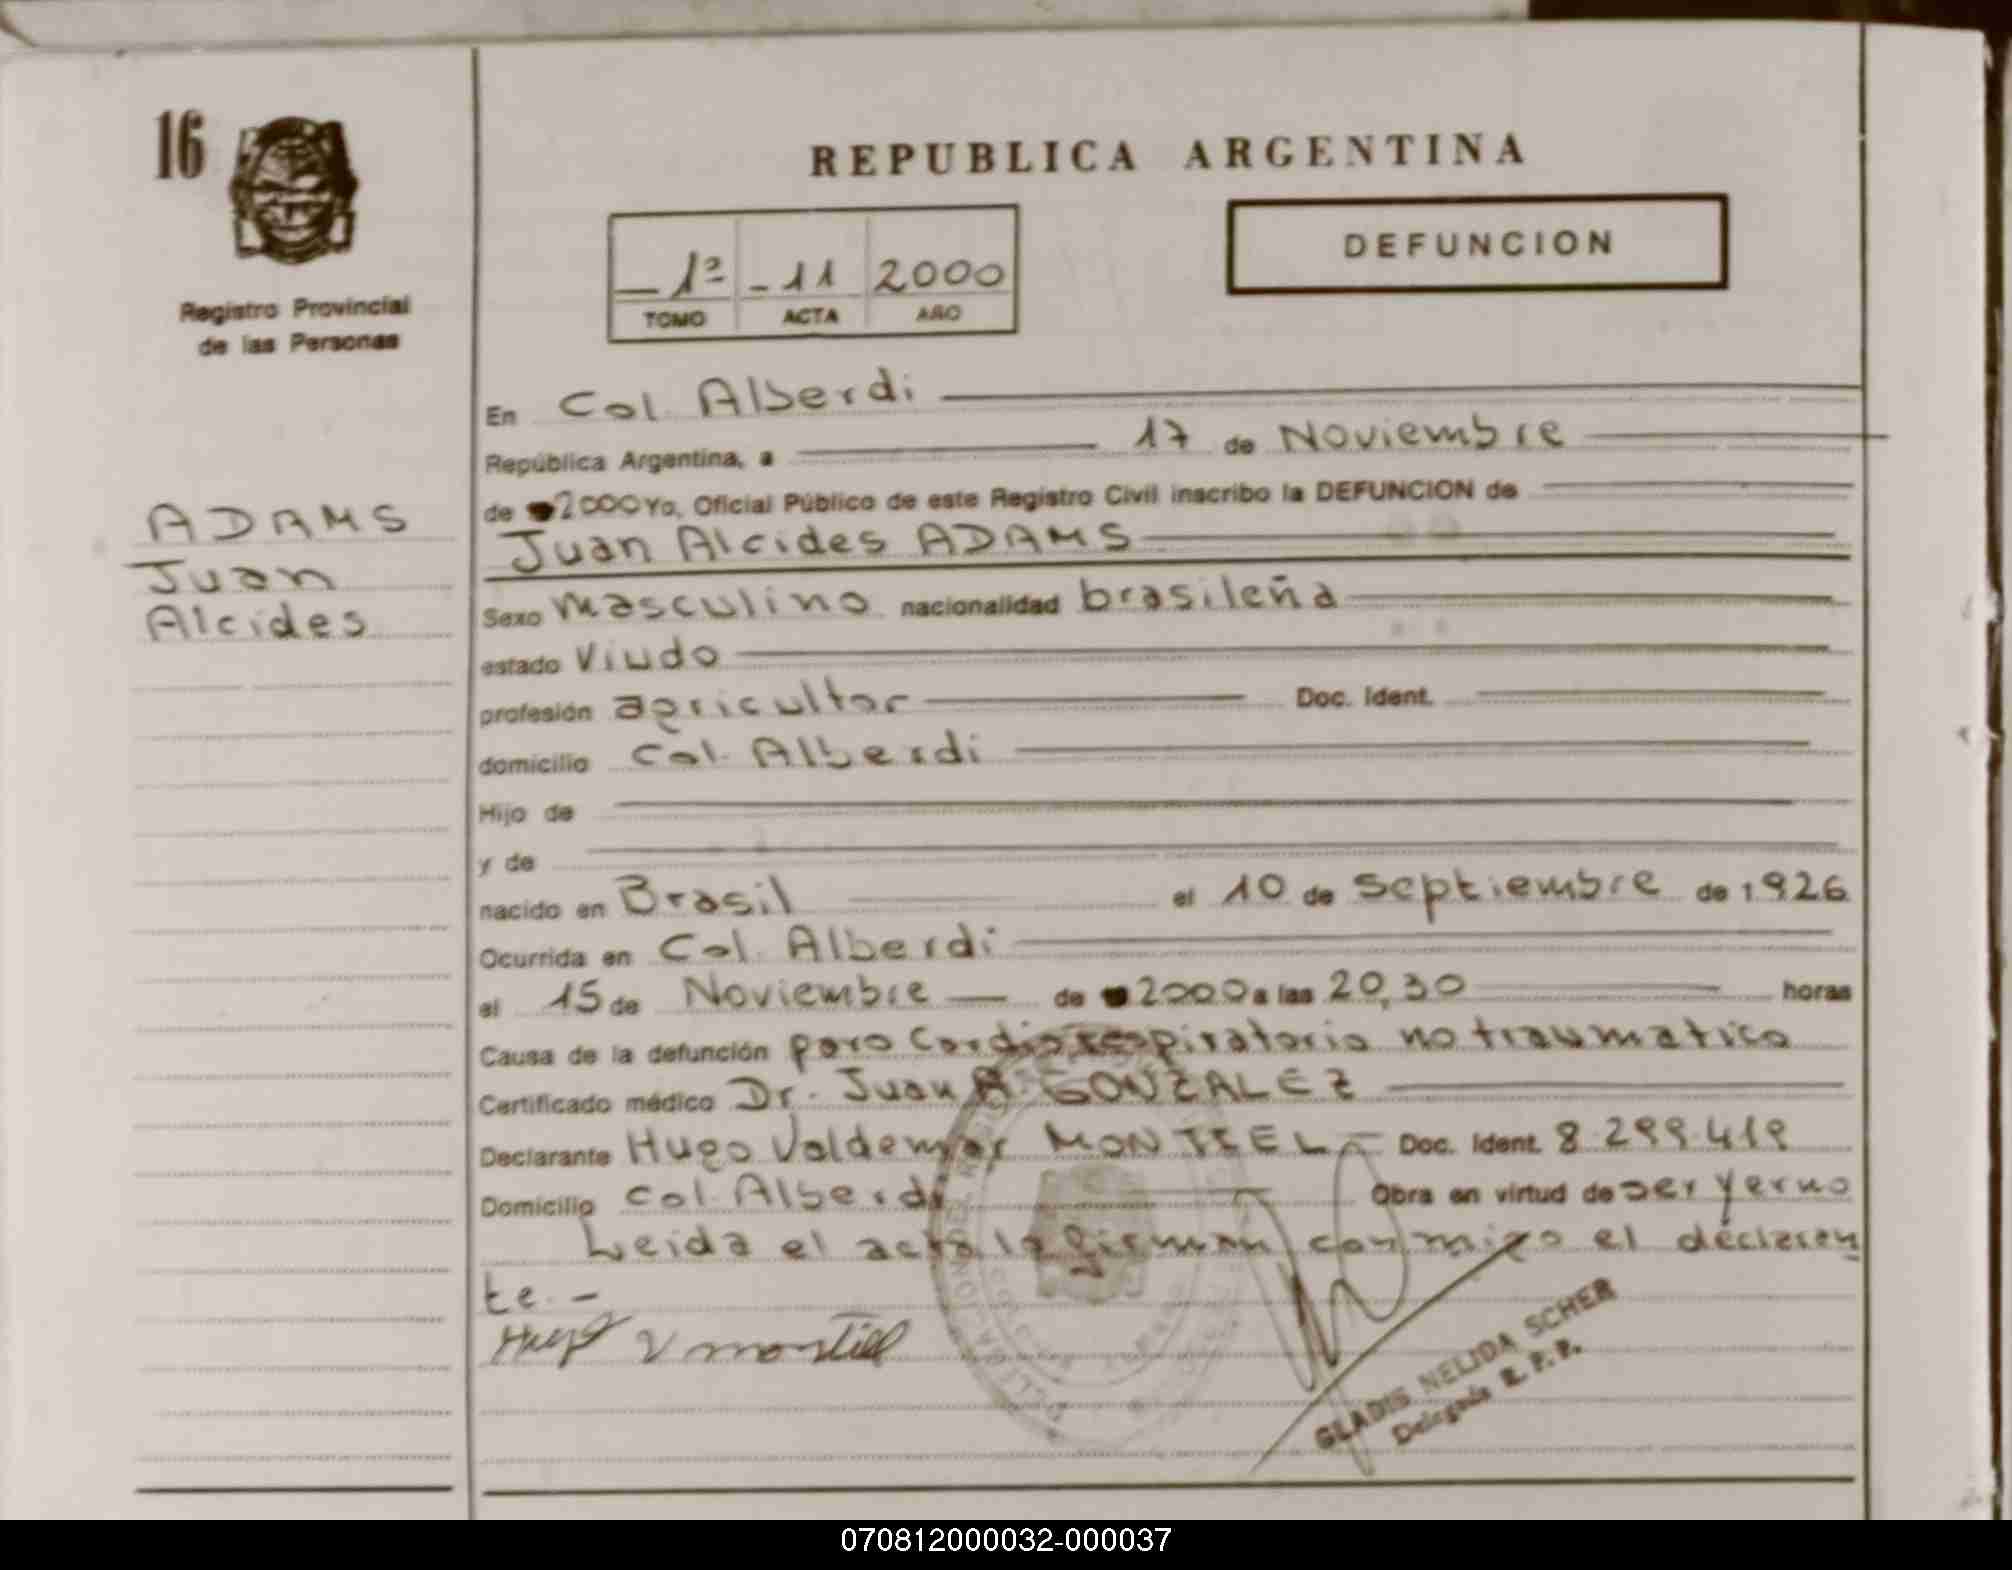 16
Registro Provincial
de las Personas
REPUBLICA ARGENTINA
DEFUNCION
1º 11 2000
TOMO ACTA AÑO
ADAMS
Juan
Alcides
En Col. Alberdi
República Argentina, a 17 de Noviembre
de 2000 Yo, Oficial Público de este Registro Civil inscribo la DEFUNCION de
Juan Alcides ADAMS
Sexo masculino nacionalidad brasileña
estado Viudo
profesión agricultor Doc. Ident.
domicilio Col. Alberdi
Hijo de
y de
nacido en Brasil el 10 de Septiembre de 1926
Ocurrida en Col. Alberdi
el 15 de Noviembre de 2000 a las 20,30 horas
Causa de la defunción paro Cardiorespiratorio no traumatico
Certificado médico Dr. Juan A. GONZALEZ
Declarante Hugo Valdemar MONTIEL Doc. Ident. 8.299.419
Domicilio Col. Alberdi Obra en virtud de ser yerno
Leida el acta la firman conmigo el declaran
te.-
Hugo V montiel
GLADIS NELIDA SCHER
Delegada R. P. P.
070812000032-000037